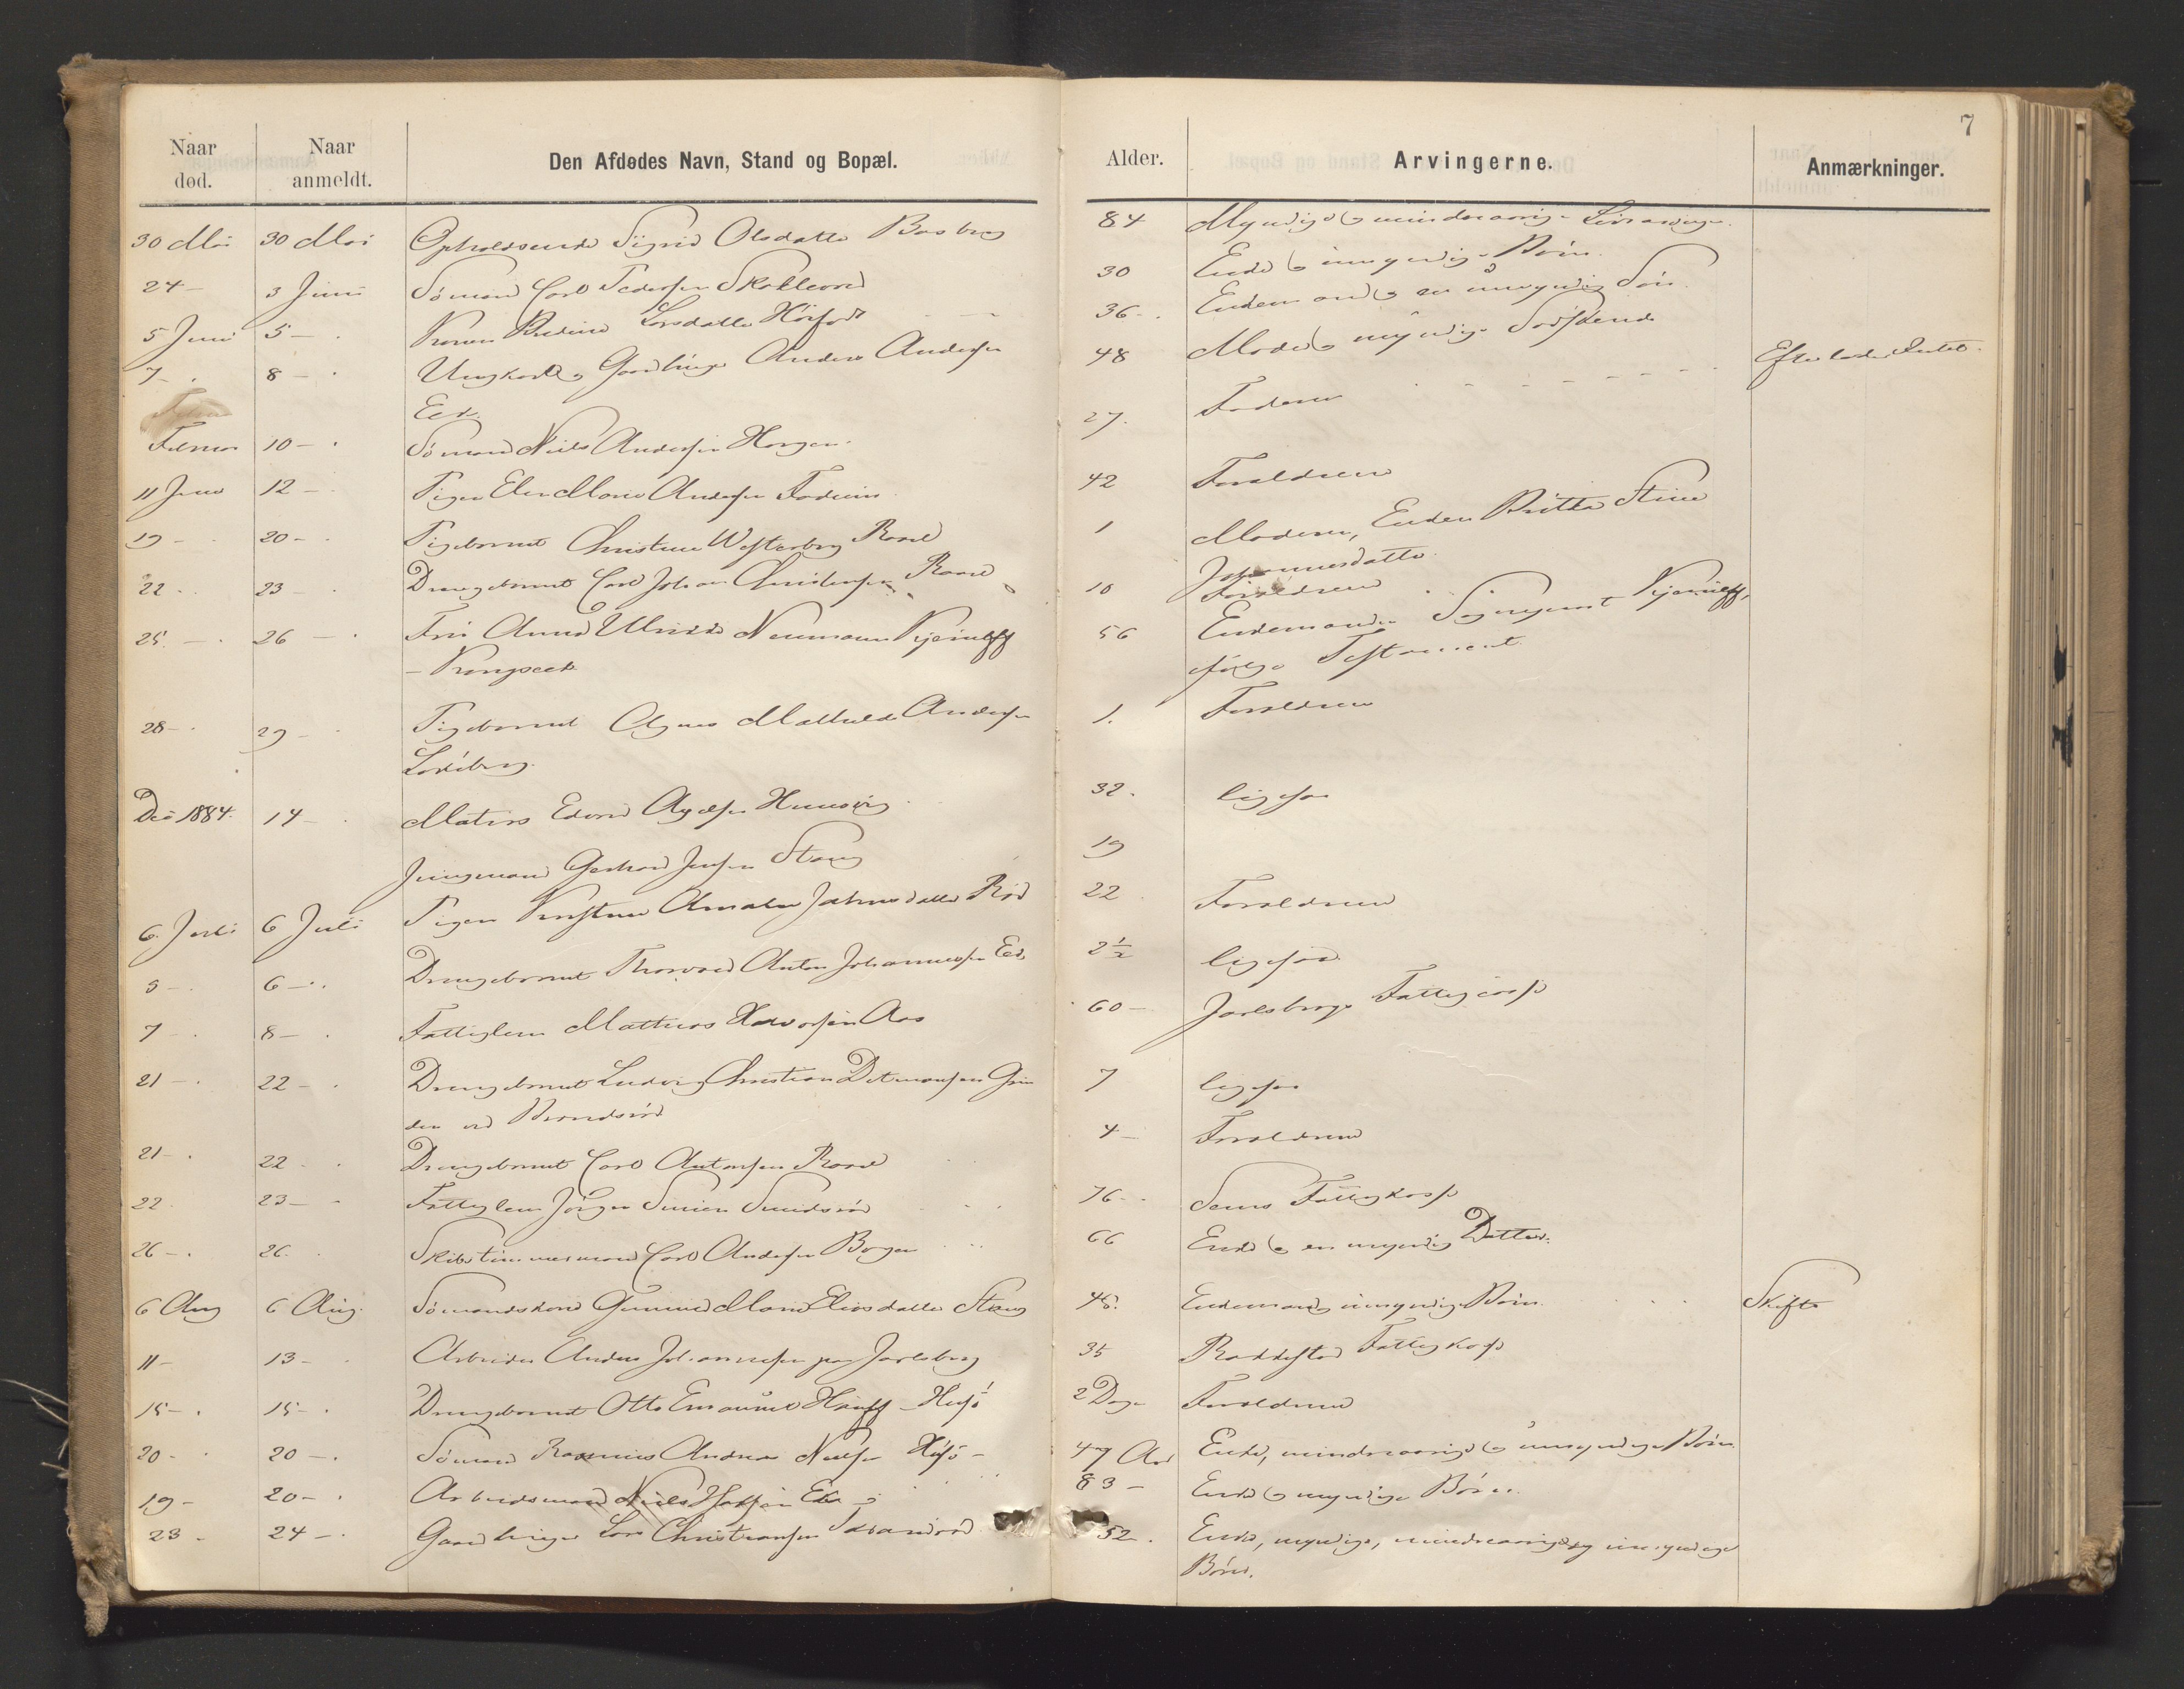 7
Naar død. Naar anmeldt. Den Afdødes Navn, Stand og Bopæl. Alder. Arvingerne. Anmærkninger.
30 Mai 30 Mai Opholdsenke Sigrid Olsdatter Basberg 84 Myndige & mindreaarige Livsarvinger.
24 – 3 Juni Sømand Carl Pedersen 30 Enke & umyndige Børn.
5 Juni 5 – Karen Larsdatter 36 Enkemand & en umyndig Søn.
7 – 8 – Ungkarl & Gaardbruger Anders Andersen 48 Moder & myndige Sødskende Efterlader Intet.
Eek.
Februar 10 – Sømand Niels Andersen Horgen 27. Faderen
11 Juni 12 – Pigen Elen Marie Andersen 42 Forældrene
19 – 20 – Pigebarnet Christine Westerberg Raael 1 Moderen, Enken Britta Stine
Johannesdatter
22 – 23 – Drengebarnet Carl Johan Christensen Raael 10 Forældrene
25 – 26 – Fru Anna Ulrikke Neumann Kjerulff 56 Enkemanden Sogneprest Kjerulff,
– Kongseek ifølge Testament.
28 – 29 – Pigebarnet Agnes Mathilde Andersen 1. Forældrene
Dec 1884. 14 – Matros Edvard 32. ligesaa
Jungmand Gerhard Jensen Stang 19
6 Juli 6 Juli Pigen Amalie Rød 22 Forældrene
5 – 6 – Drengebarnet Thorvald Anton Johannesen Eek 2½ ligesaa
7 – 8 – Fattiglem Mathias Halvorsen Aas 60 – Jarlsbergs Fattigcasse
21 – 22 – Drengebarnet Ludvig Christian Ditmansen 7 ligesaa
21 – 22 – Drengebarnet Carl Antonsen Raael 4 – Forældrene
22 23 – Fattiglem Jørgen 76 – Sems Fattigkasse
26 – 26. Skibstømmermand Carl Andersen Borgen 66 Enke & en myndig Datter.
6 Aug 6 Aug. Sømandskone Gunnild Marie Eliasdatter Stang 45. Enkemand & umyndige Børn Skifte
11 – 13 – Arbeider Anders Johannesen paa Jarlsberg 35 Fattigkasse
15 – 15 – Drengebarnet Otto Emanuel Hauff – Husø 2 Dage Forældrene
20 – 20 – Sømand Rasmus Andreas Nielsen Husø – 47 Aar Enke, mindreaarige & umyndige Børn
19 – 20 – Arbeidsmand Niels 83 – Enke & myndige Børn.
23 – 24 – Gaardbruger Lars Christiansen 52. Enke, myndige, mindreaarige og umyndige
Børn.